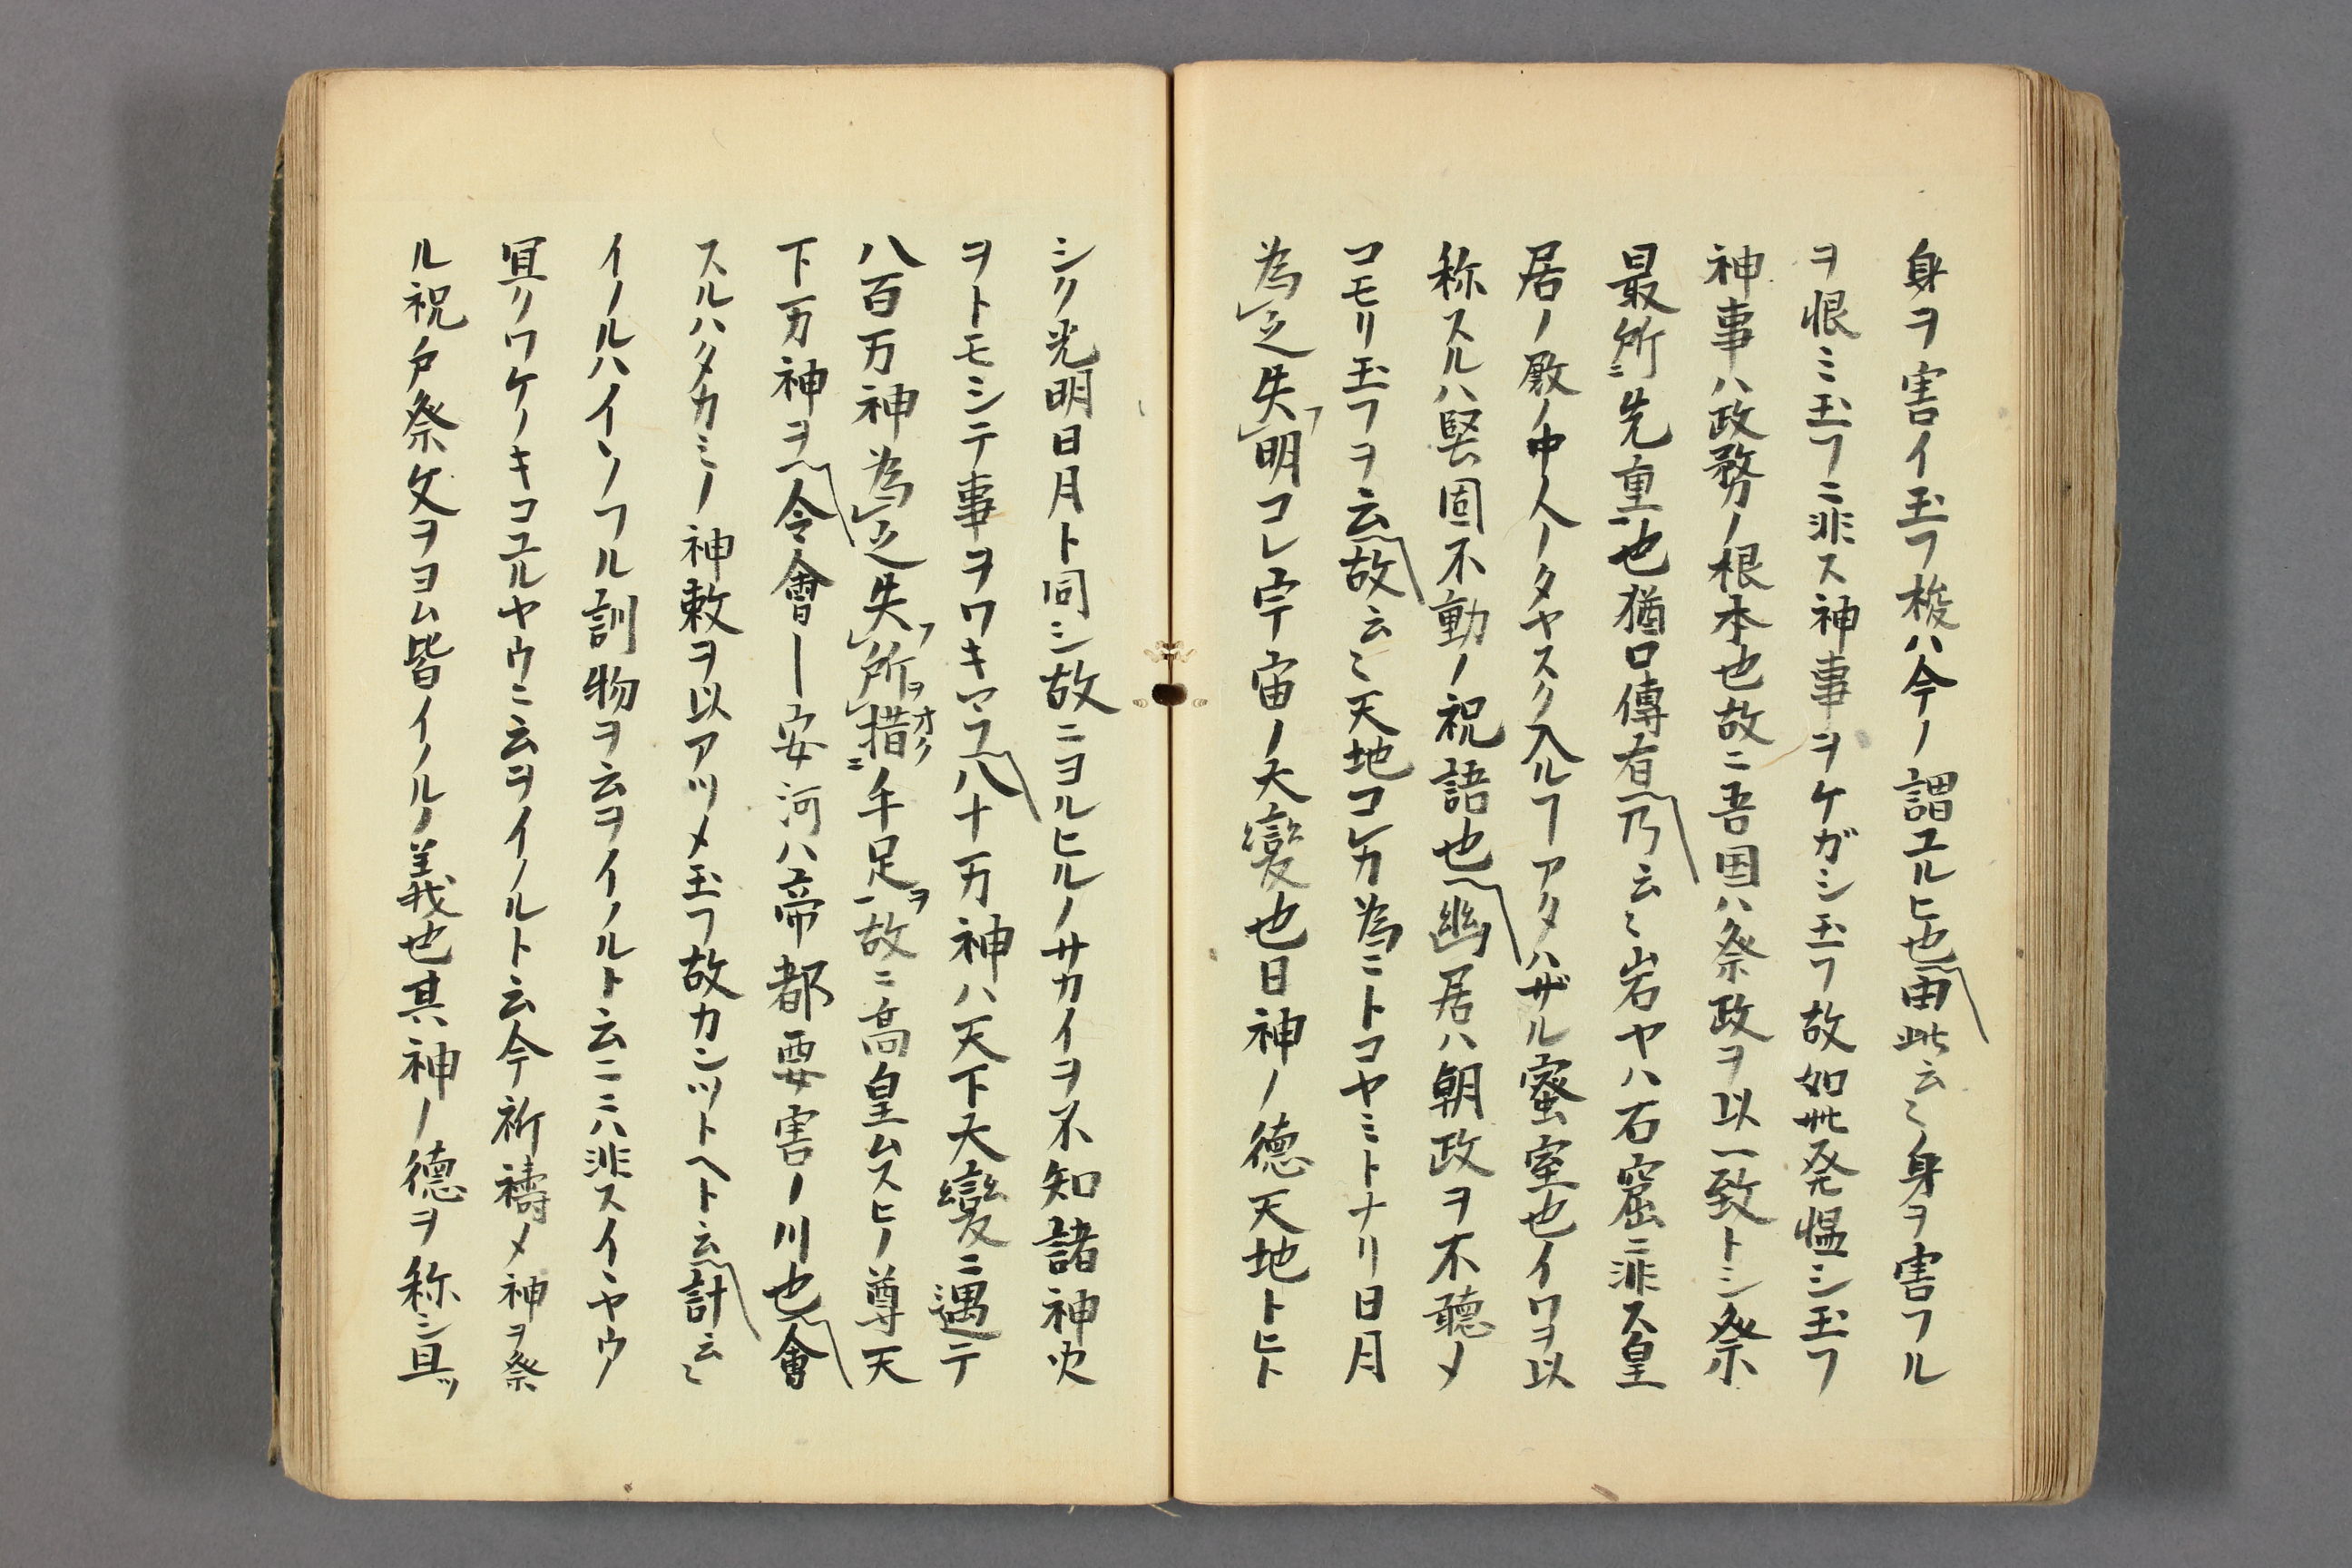 身ヲ害イ玉フ梭ハ今ノ謂ユルヒ也由此云〻身ヲ害フル
ヲ恨ミ玉フニ非ス神事ヲケガシ玉フ故如此発慍シ玉フ
神事ハ政務ノ根本也故ニ吾国ハ祭政ヲ以一致トシ祭
最所ニ先重也猶口傳有乃云〻岩ヤハ石窟ニ非ス皇
居ノ殿ノ中人ノタヤスク入ルヿアタハザル蜜室也イワヲ以
称スルハ堅固不動ノ祝語也幽居ハ朝政ヲ不聴メ
コモリ玉フヲ云故云〻天地コレカ為ニトコヤミトナリ日月
為之失明コレ宇宙ノ大變也日神ノ德天地トヒト
シク光明日月ト同シ故ニヨルヒルノサカイヲ不知諸神火
ヲトモシテ事ヲワキマフ八十万神ハ天下大變ニ遇テ
八百万神為之失所ヲ措オクニ手足ヲ故ニ高皇ムスヒノ尊天
下万神ヲ令會ー安河ハ帝都要害ノ川也會
スルハタカミノ神敕ヲ以アツメ玉フ故カンツトヘト云計云〻
イノルハイソフル訓物ヲ云ヲイノルト云ニハ非スイヽヤウ
冥リワケノキコユルヤウニ云ヲイノルト云今祈禱メ神ヲ祭
ル祝户祭文ヲヨム皆イノルノ義也其神ノ德ヲ称シ且ツ